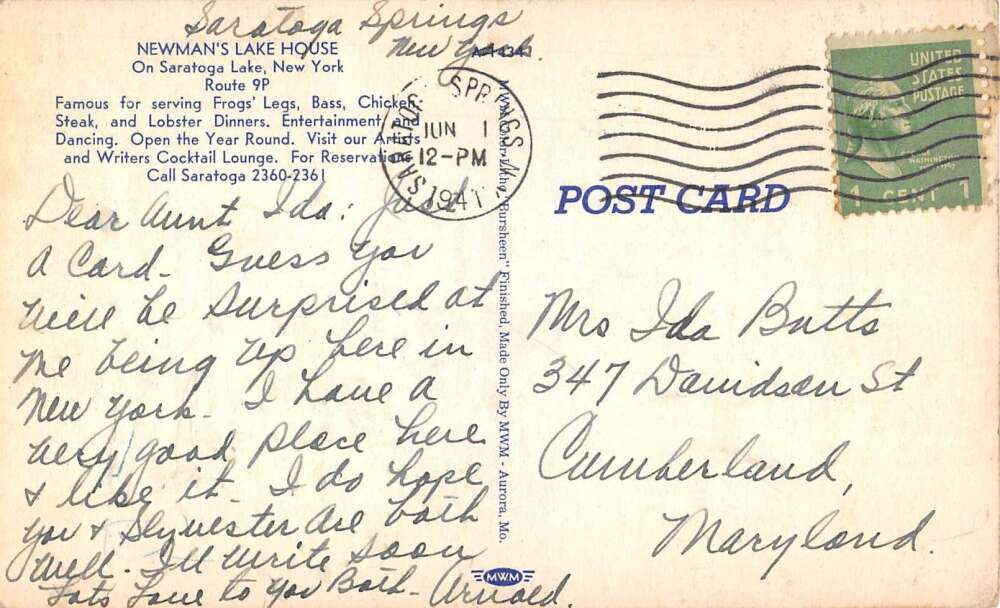 Saratoga Springs
New York
NEWMAN'S LAKE HOUSE
On Saratoga Lake, New York
Route 9P
Famous for serving Frogs' Legs, Bass, Chicken
Steak, and Lobster Dinners. Entertainment
Dancing. Open the Year Round. Visit our Artists
and Writers Cocktail Lounge. For Reservations
Call Saratoga 2360-2361
SARATOGA SPRINGS N.Y.
JUN 1
12-PM
1941
UNITED
STATES
POSTAGE
1 CENT 1
POST CARD
Dear Aunt Ida: Just
A Card- Guess you
will be surprised at
me being up here in
New York- I have a
very good place here
& like it- I do hope
you & Slyvester are both
well. I'll write soon
Lots Love to you Both- Arnold.
"Bursheen" Finished, Made Only By MWM - Aurora, Mo.
MWM
Mrs Ida Butts
347 Davidson St
Cumberland,
Maryland.